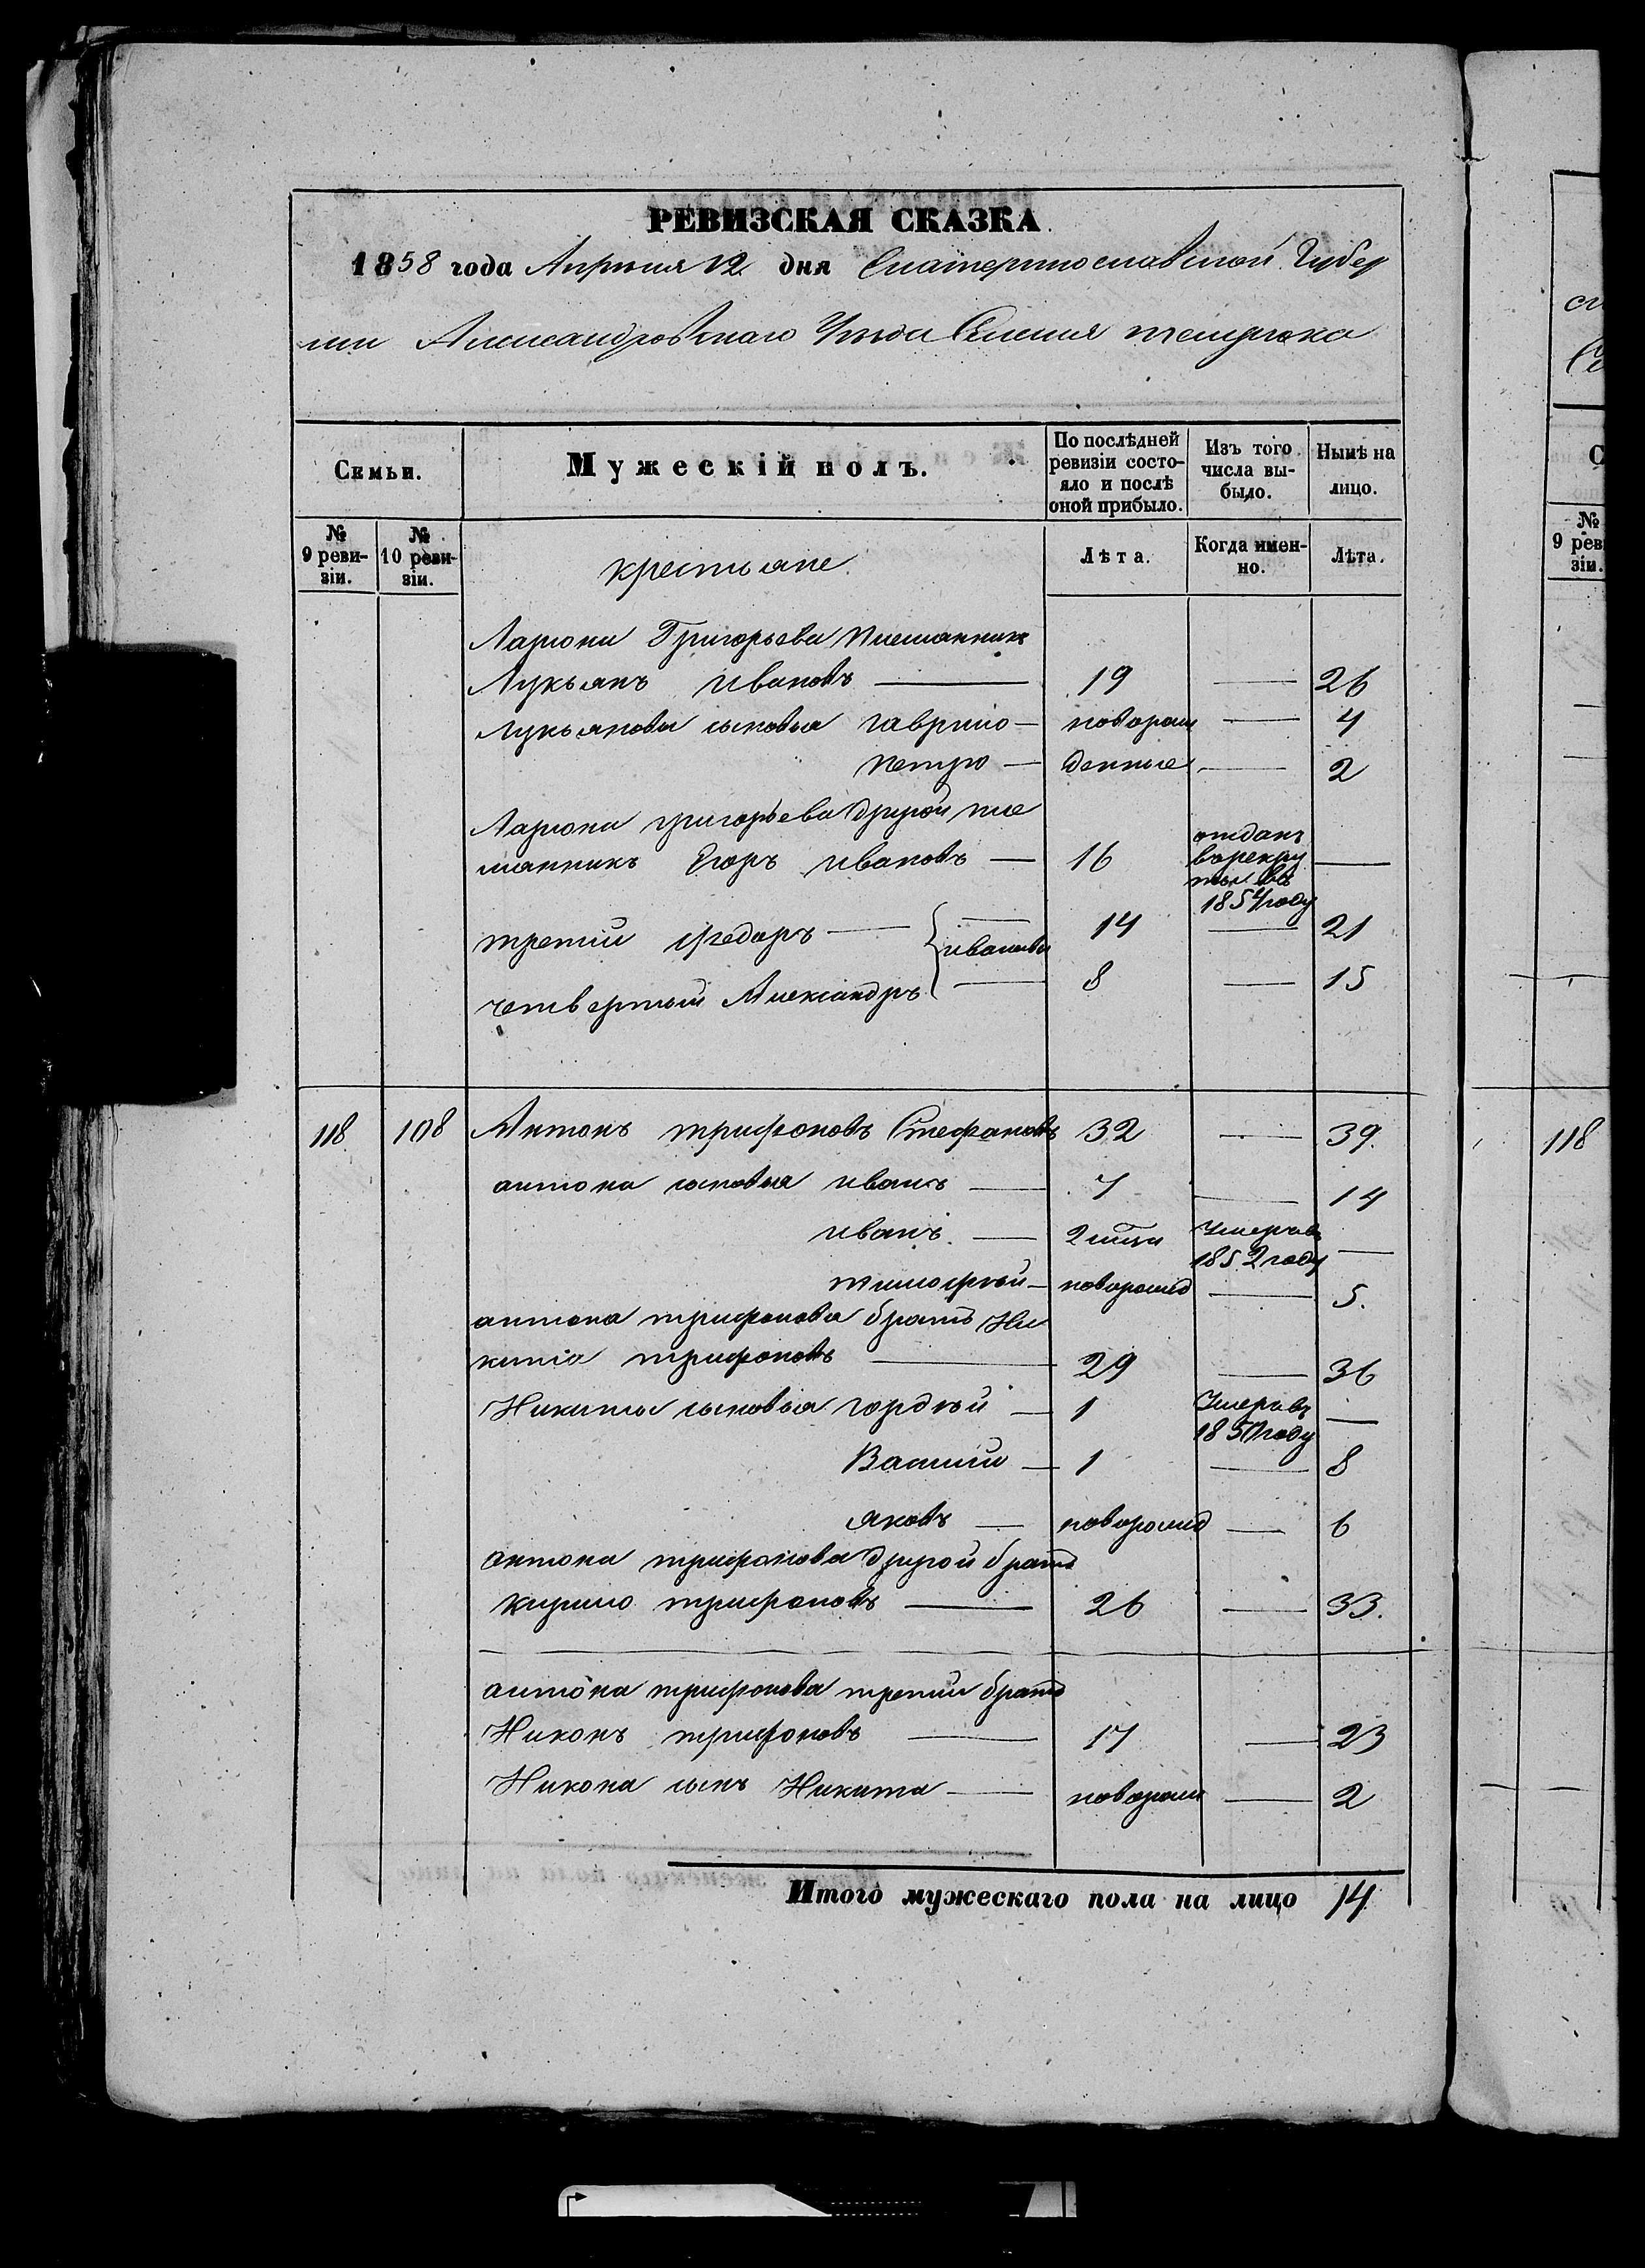 РЕВИЗСКАЯ СКАЗКА
1858 года Апреля 12 дня Екатеринославской Губер
нии Александровскаго Уезда Селенія темрюка
Семьи.
Мужескій полъ.
По послѣдней ревизіи состо-яло и послѣ оной прибыло.
Изъ того числа вы-было.
Нынѣ на лицо.
№ 9 реви-зіи.
№ 10 реви-зіи.
крестьяне
Лѣта.
Когда имен-но.
Лѣта.
Лариона Григорьева племянникъ
Лукьянъ ивановъ — 19 — 26
лукьянова сыновья гаврило — новорож — 4
петро — денные — 2
Лариона григорьева другой пле
мянникъ Егоръ ивановъ — 16 отданъ врекру ты въ 1854 году —
третий федоръ — { ивановы — 14 — 21
четвертый Александръ — 8 — 15
118 108 Антонъ трифоновъ Стефановъ 32 — 39.
антона сыновья иванъ — 7 — 14
иванъ — 2 Умеръ въ 1852 году —
тимофей — новорожд — 5.
антона трифонова братъ Ни
кита трифоновъ — 29 — 36
Никиты сыновья гордѣй — 1 Умеръ въ 1850 году —
Василий — 1 — 8
яковъ — новорожд — 6
антона трифонова другой братъ
кирило трифоновъ — 26 — 33.
антона трифонова третий братъ
Никонъ трифоновъ — 17 — 23
Никона сынъ Никита — новорож — 2
Итого мужескаго пола на лицо 14
№ 9 рев зіи.
118